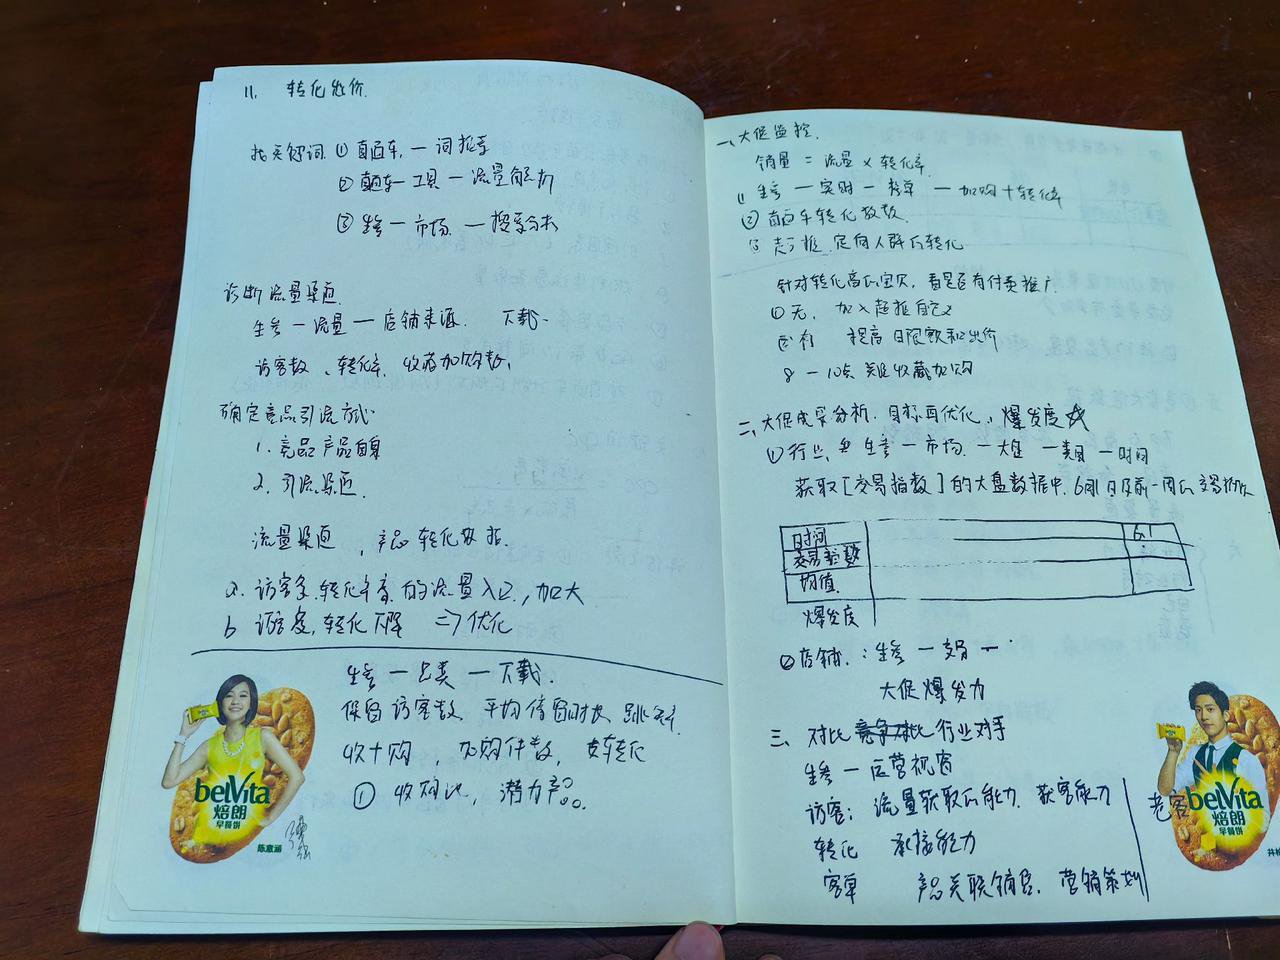 11. 转化出价.
找关键词 ① 直通车, 一 词推荐
② 直通车 工具 一 流量解析
③ 生参 一 市场. 一 搜索分析
诊断流量渠道.
生参 一 流量 一 店铺来源. 下载.
访客数、转化率, 收藏加购数,
确定竞品引流方式.
1. 竞品产品自身
2. 引流渠道.
流量渠道, 产品 转化数据.
a. 访客多, 转化率高, 的流量入口, 加大
b 访客多, 转化下降 => 优化
生参 一 品类 一 下载.
保留 访客数 平均停留时长 跳失率
收+购, 加购件数, 支付转化
① 收购比, 潜力产品.
belVita
焙朗
早餐饼
陈意涵
一、大促监控.
销量 = 流量 × 转化率.
① 生参 一 实时 一 榜单 一 加购+转化率
② 直通车转化数数.
③ 超推, 定向人群的转化
针对转化高的宝贝, 看是否有付费推广
① 无, 加入超推自定义
② 有 提高日限额和出价
8 一 10点 关注收藏加购
二、大促成果分析. 目标再优化, 爆发度
① 行业, 生参 一 市场. 一 大盘 一 类目 一 时间
获取[交易指数]的大盘数据中, 6月1日及前一周的交易指数
时间 6.1
交易指数
均值.
爆发度
② 店铺.: 生参 一 交易 一
大促爆发力
三. 对比 行业对手
生参 一 运营视窗
访客: 流量获取的能力. 获客能力
老客
转化 承接能力
客单 产品关联销售. 营销策划
belVita
焙朗
早餐饼